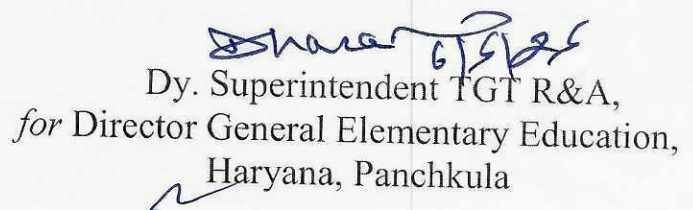 6/5/25
Dy. Superintendent TGT R&A,
for Director General Elementary Education,
Haryana, Panchkula